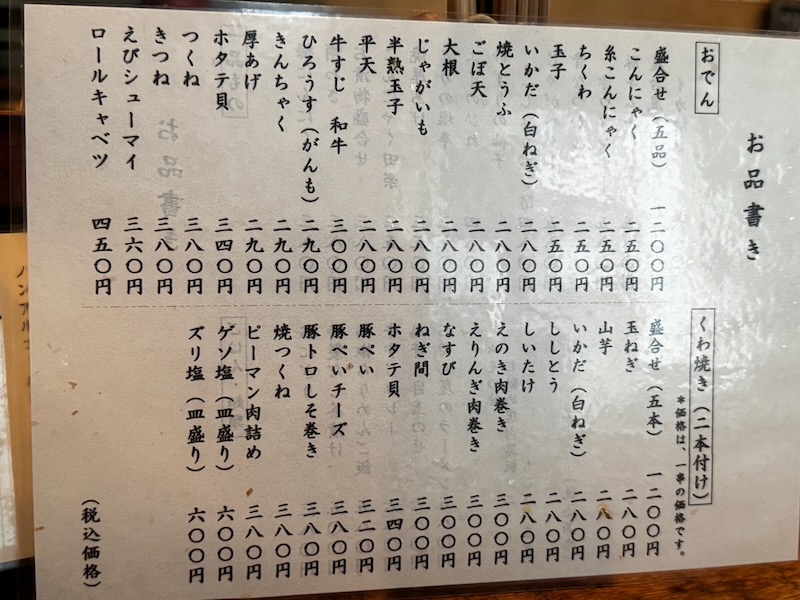 お品書き
おでん
盛合せ（五品） 一二〇〇円
こんにゃく 二五〇円
糸こんにゃく 二五〇円
ちくわ 二五〇円
玉子 二五〇円
いかだ（白ねぎ） 二八〇円
焼とうふ 二八〇円
ごぼ天 二八〇円
大根 二八〇円
じゃがいも 二八〇円
半熟玉子 二八〇円
平天 二八〇円
牛すじ 和牛 三〇〇円
ひろうす（がんも） 二九〇円
きんちゃく 二九〇円
厚あげ 二九〇円
ホタテ貝 三四〇円
つくね 三八〇円
きつね 三八〇円
えびシューマイ 三六〇円
ロールキャベツ 四五〇円
くわ焼き（二本付け）
＊価格は、一串の価格です。
盛合せ（五本） 一二〇〇円
玉ねぎ 二八〇円
山芋 二八〇円
いかだ（白ねぎ） 二八〇円
ししとう 二八〇円
しいたけ 二八〇円
えのき肉巻き 三〇〇円
えりんぎ肉巻き 三〇〇円
なすび 三〇〇円
ねぎ間 三〇〇円
ホタテ貝 三四〇円
豚ぺい 三二〇円
豚ぺいチーズ 三八〇円
豚トロしそ巻き 三八〇円
焼つくね 三八〇円
ピーマン肉詰め 三八〇円
ゲソ塩（皿盛り） 六〇〇円
ズリ塩（皿盛り） 六〇〇円
（税込価格）